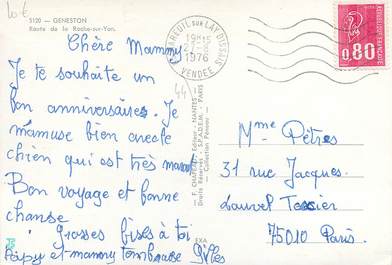 10€
5120 - GENESTON
Route de la Roche-sur-Yon.
Chère Mammy
Je te souhaite un
bon anniversaires. Je
m'amuse bien avec le
chien qui est très
Bon voyage et bonne
chanse
Grosses bises à toi
papy et mammy Gilles
MAREUIL sur LAY DISSAIS
19H15
1976
VENDÉE
44
POSTES
RÉPUBLIQUE FRANÇAISE
0,80
F. CHAPEAU Éditeur - NANTES
Droits Réservés - S.P.A.D.E.M. - PARIS
EXA
Mme Pètres
31 rue Jacques.
Louvel Tessier
75010 Paris.